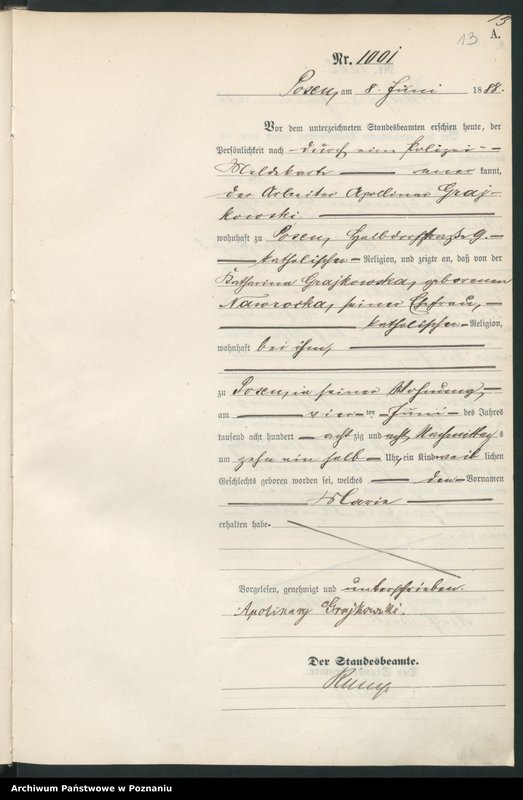 13
A.
13
Nr. 1001
Posen, am 8. Juni 1888.
Vor dem unterzeichneten Standesbeamten erschien heute, der
Persönlichkeit nach durch eine Polizei-
Meldekarte aner kannt,
der Arbeiter Apollinar Graj-
kowski,
wohnhaft zu Posen, Halbdorfstraße 9.
katholischer Religion, und zeigte an, daß von der
Katharina Grajkowska, geborenen
Naworska, seiner Ehefrau,
katholischer Religion,
wohnhaft bei ihm,
zu Posen, in seiner Wohnung
am vier ten Juni des Jahres
tausend acht hundert acht zig und acht, Nachmittags
um zehn ein halb Uhr, ein Kind weib lichen
Geschlechts geboren worden sei, welches den Vornamen
Marie
erhalten habe.
Vorgelesen, genehmigt und unterschrieben.
Apolinary Grajkowski.
Der Standesbeamte.
Archiwum Państwowe w Poznaniu